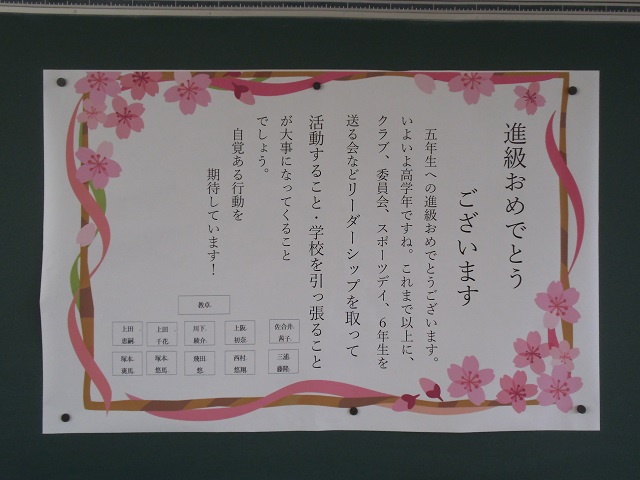 進級おめでとう
ございます
五年生への進級おめでとうございます。
いよいよ高学年ですね。これまで以上に、
クラブ、委員会、スポーツデイ、6年生を
送る会などリーダーシップを取って
活動すること・学校を引っ張ること
が大事になってくること
でしょう。
自覚ある行動を
期待しています!
教卓
上田
恵嗣
上田
千花
川下
綾介
上阪
初奈
佐合井
茜子
塚本
悠馬
飛田
悠
西村
悠翔
三浦
藤隆